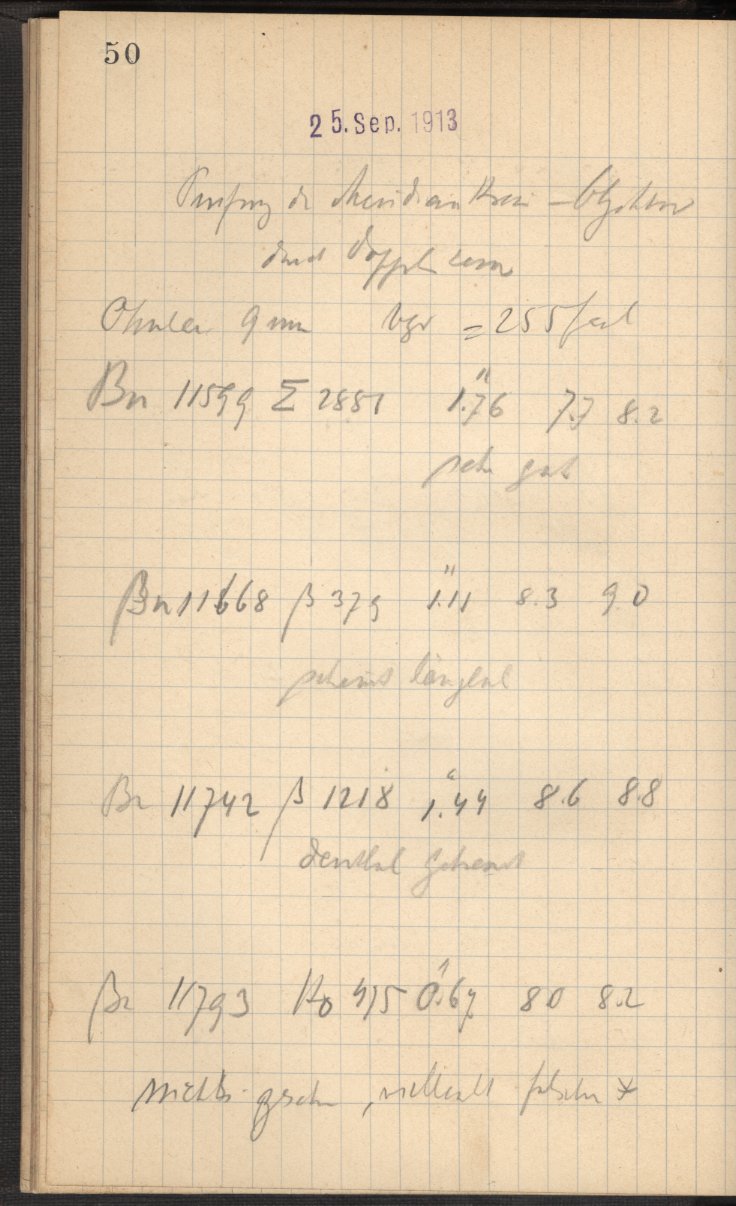 50
25. Sep. 1913
Prüfung des Meridiankreis-Objektivs
durch Doppelsterne
Okular 9 mm Vgr = 255 fach
Bu 11599 Σ 2881 1".76 7.7 8.2
sehr gut
Bu 11668 β 379 1".11 8.3 9.0
scheint länglich
Bu 11742 β 1218 1".44 8.6 8.8
deutlich getrennt
Bu 11793 Ho 475 0".67 8.0 8.2
nichts gesehen, vielleicht falscher *